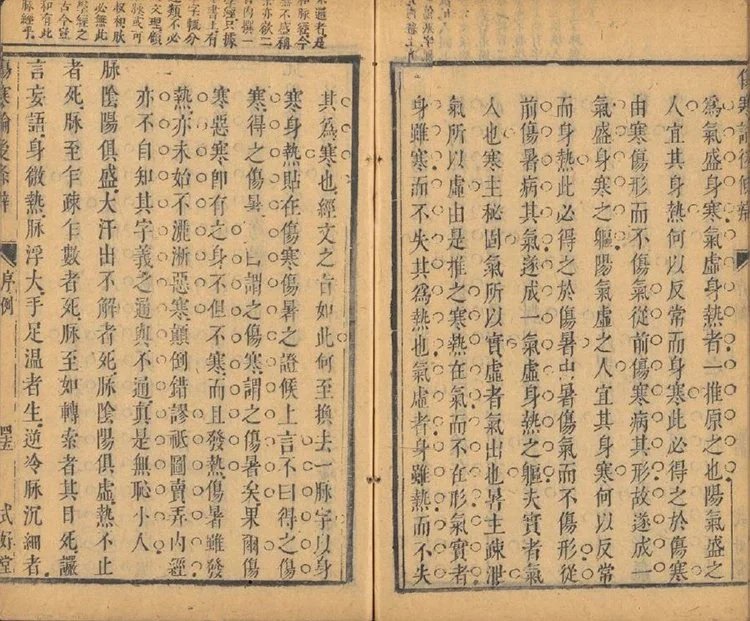 傷寒論後條辨
為氣盛身寒氣虛身熱者一推原之也陽氣盛之
人宜其身熱何以反常而身寒此必得之於傷寒
由寒傷形而不傷氣從前傷寒病其形故遂成一
氣盛身寒之軀陽氣虛之人宜其身寒何以反常
而身熱此必得之於傷暑由暑傷氣而不傷形從
前傷暑病其氣遂成一氣虛身熱之軀夫實者氣
入也寒主秘固氣所以實虛者氣出也暑主疎泄
氣所以虛由是推之寒熱在氣而不在形氣實者
身雖寒而不失其為熱也氣虛者身雖熱而不失
脉經今
無不盛稱
亦欲二
內撰一
書上有
經只據
字輒分
文理順
之類不必
脉或可
必無此
脉經乎
其為寒也經文之旨如此何至換去一脉字以身
寒身熱貼在傷寒傷暑之證候上言不曰得之傷
寒得之傷暑曰謂之傷寒謂之傷暑矣果爾傷
寒惡寒卽有之身不但不寒而且發熱傷暑雖發
熱亦未始不灑淅惡寒顛倒錯謬祇圖賣弄內經
亦不自知其字義之通與不通真是無恥小人
脉陰陽俱盛大汗出不解者死脉陰陽俱虛熱不止
者死脉至乍疎乍數者死脉至如轉索者其日死讝
言妄語身微熱脉浮大手足溫者生逆冷脉沉細者
傷寒論後條辨 序例 式好堂